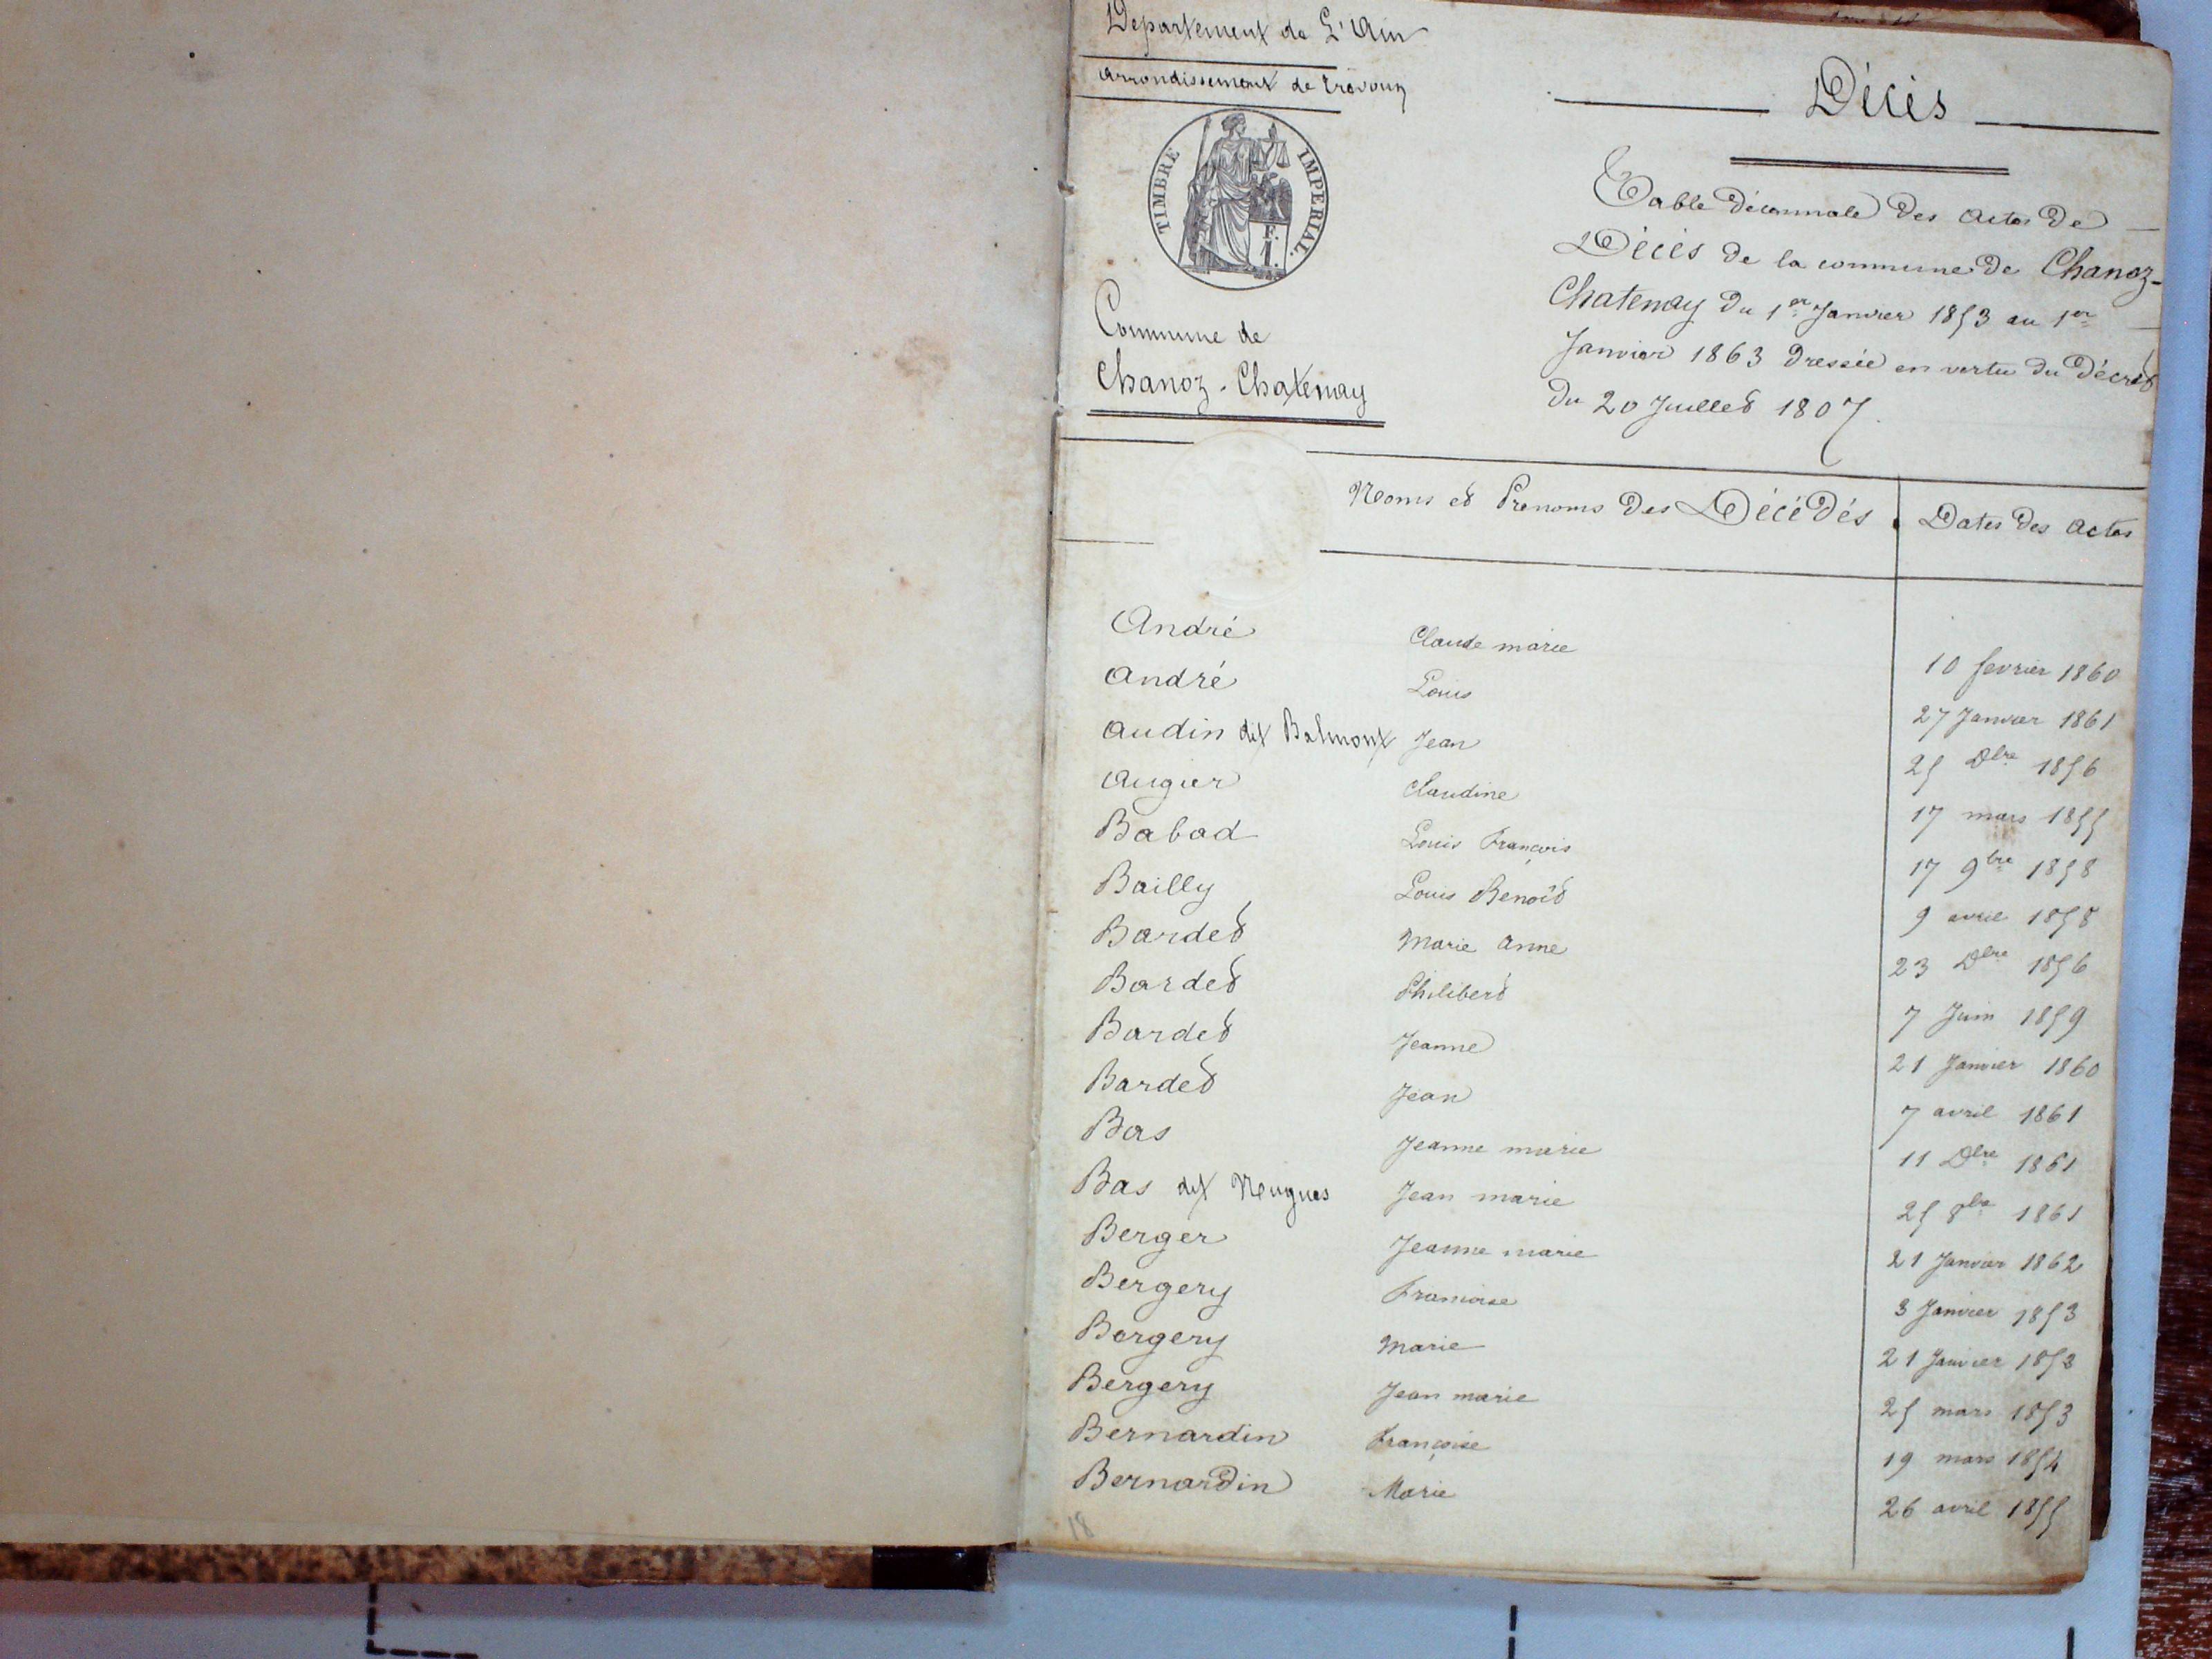 Departement de L'Ain
arrondissement de Trevoux
TIMBRE IMPERIAL.
F.
1.
Commune de
Chanoz-Chatenay
Décès
Table décennale des actes de
Décès de la commune de Chanoz-
Chatenay du 1er Janvier 1853 au 1er
Janvier 1863 dressée en vertu du décret
du 20 Juillet 1807.
Noms et Prenoms des Décédés. Dates des actes
André Claude marie 10 fevrier 1860
André Louis 27 Janvier 1861
Audin dit Balmont Jean 25 Dbre 1856
Augier Claudine 17 mars 1855
Babad Louis François 17 9bre 1858
Bailly Louis Benoît 9 avril 1858
Bardet Marie Anne 23 Dbre 1856
Bardet Philibert 7 Juin 1859
Bardet Jeanne 21 Janvier 1860
Bardet Jean 7 avril 1861
Bas Jeanne marie 11 Dbre 1861
Bas dit Nugues Jean marie 25 8bre 1861
Berger Jeanne marie 21 Janvier 1862
Bergery Francoise 3 Janvier 1853
Bergery Marie 21 Janvier 1853
Bergery Jean marie 25 mars 1853
Bernardin Françoise 19 mars 1854
Bernardin Marie 26 avril 1855
18